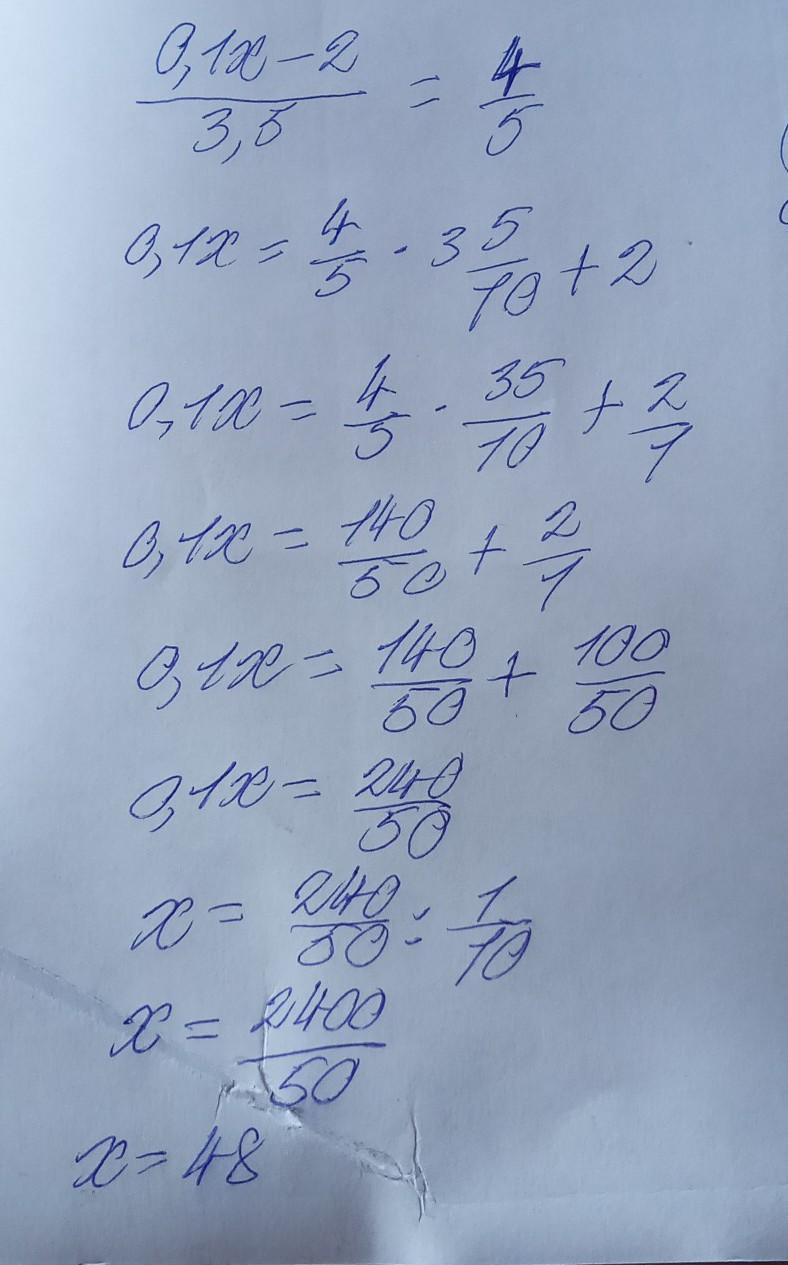 (0,1x - 2)/3,5 = 4/5
0,1x = 4/5 · 3 5/10 + 2
0,1x = 4/5 · 35/10 + 2/1
0,1x = 140/50 + 2/1
0,1x = 140/50 + 100/50
0,1x = 240/50
x = 240/50 : 1/10
x = 2400/50
x = 48